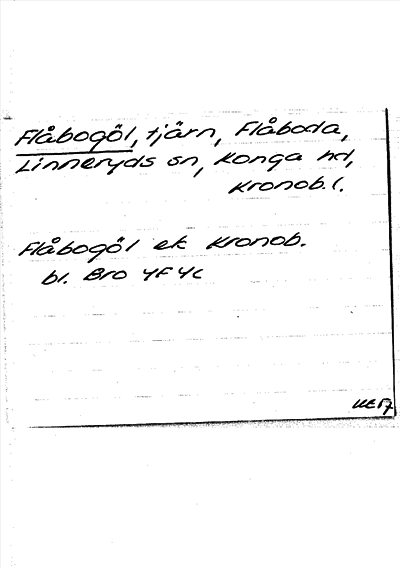 Flåbogöl, tjärn, Flåboda,
Linneryds sn, Konga hd,
Kronob. l.
Flåbogöl ek Kronob.
bl. Bro 4F4c